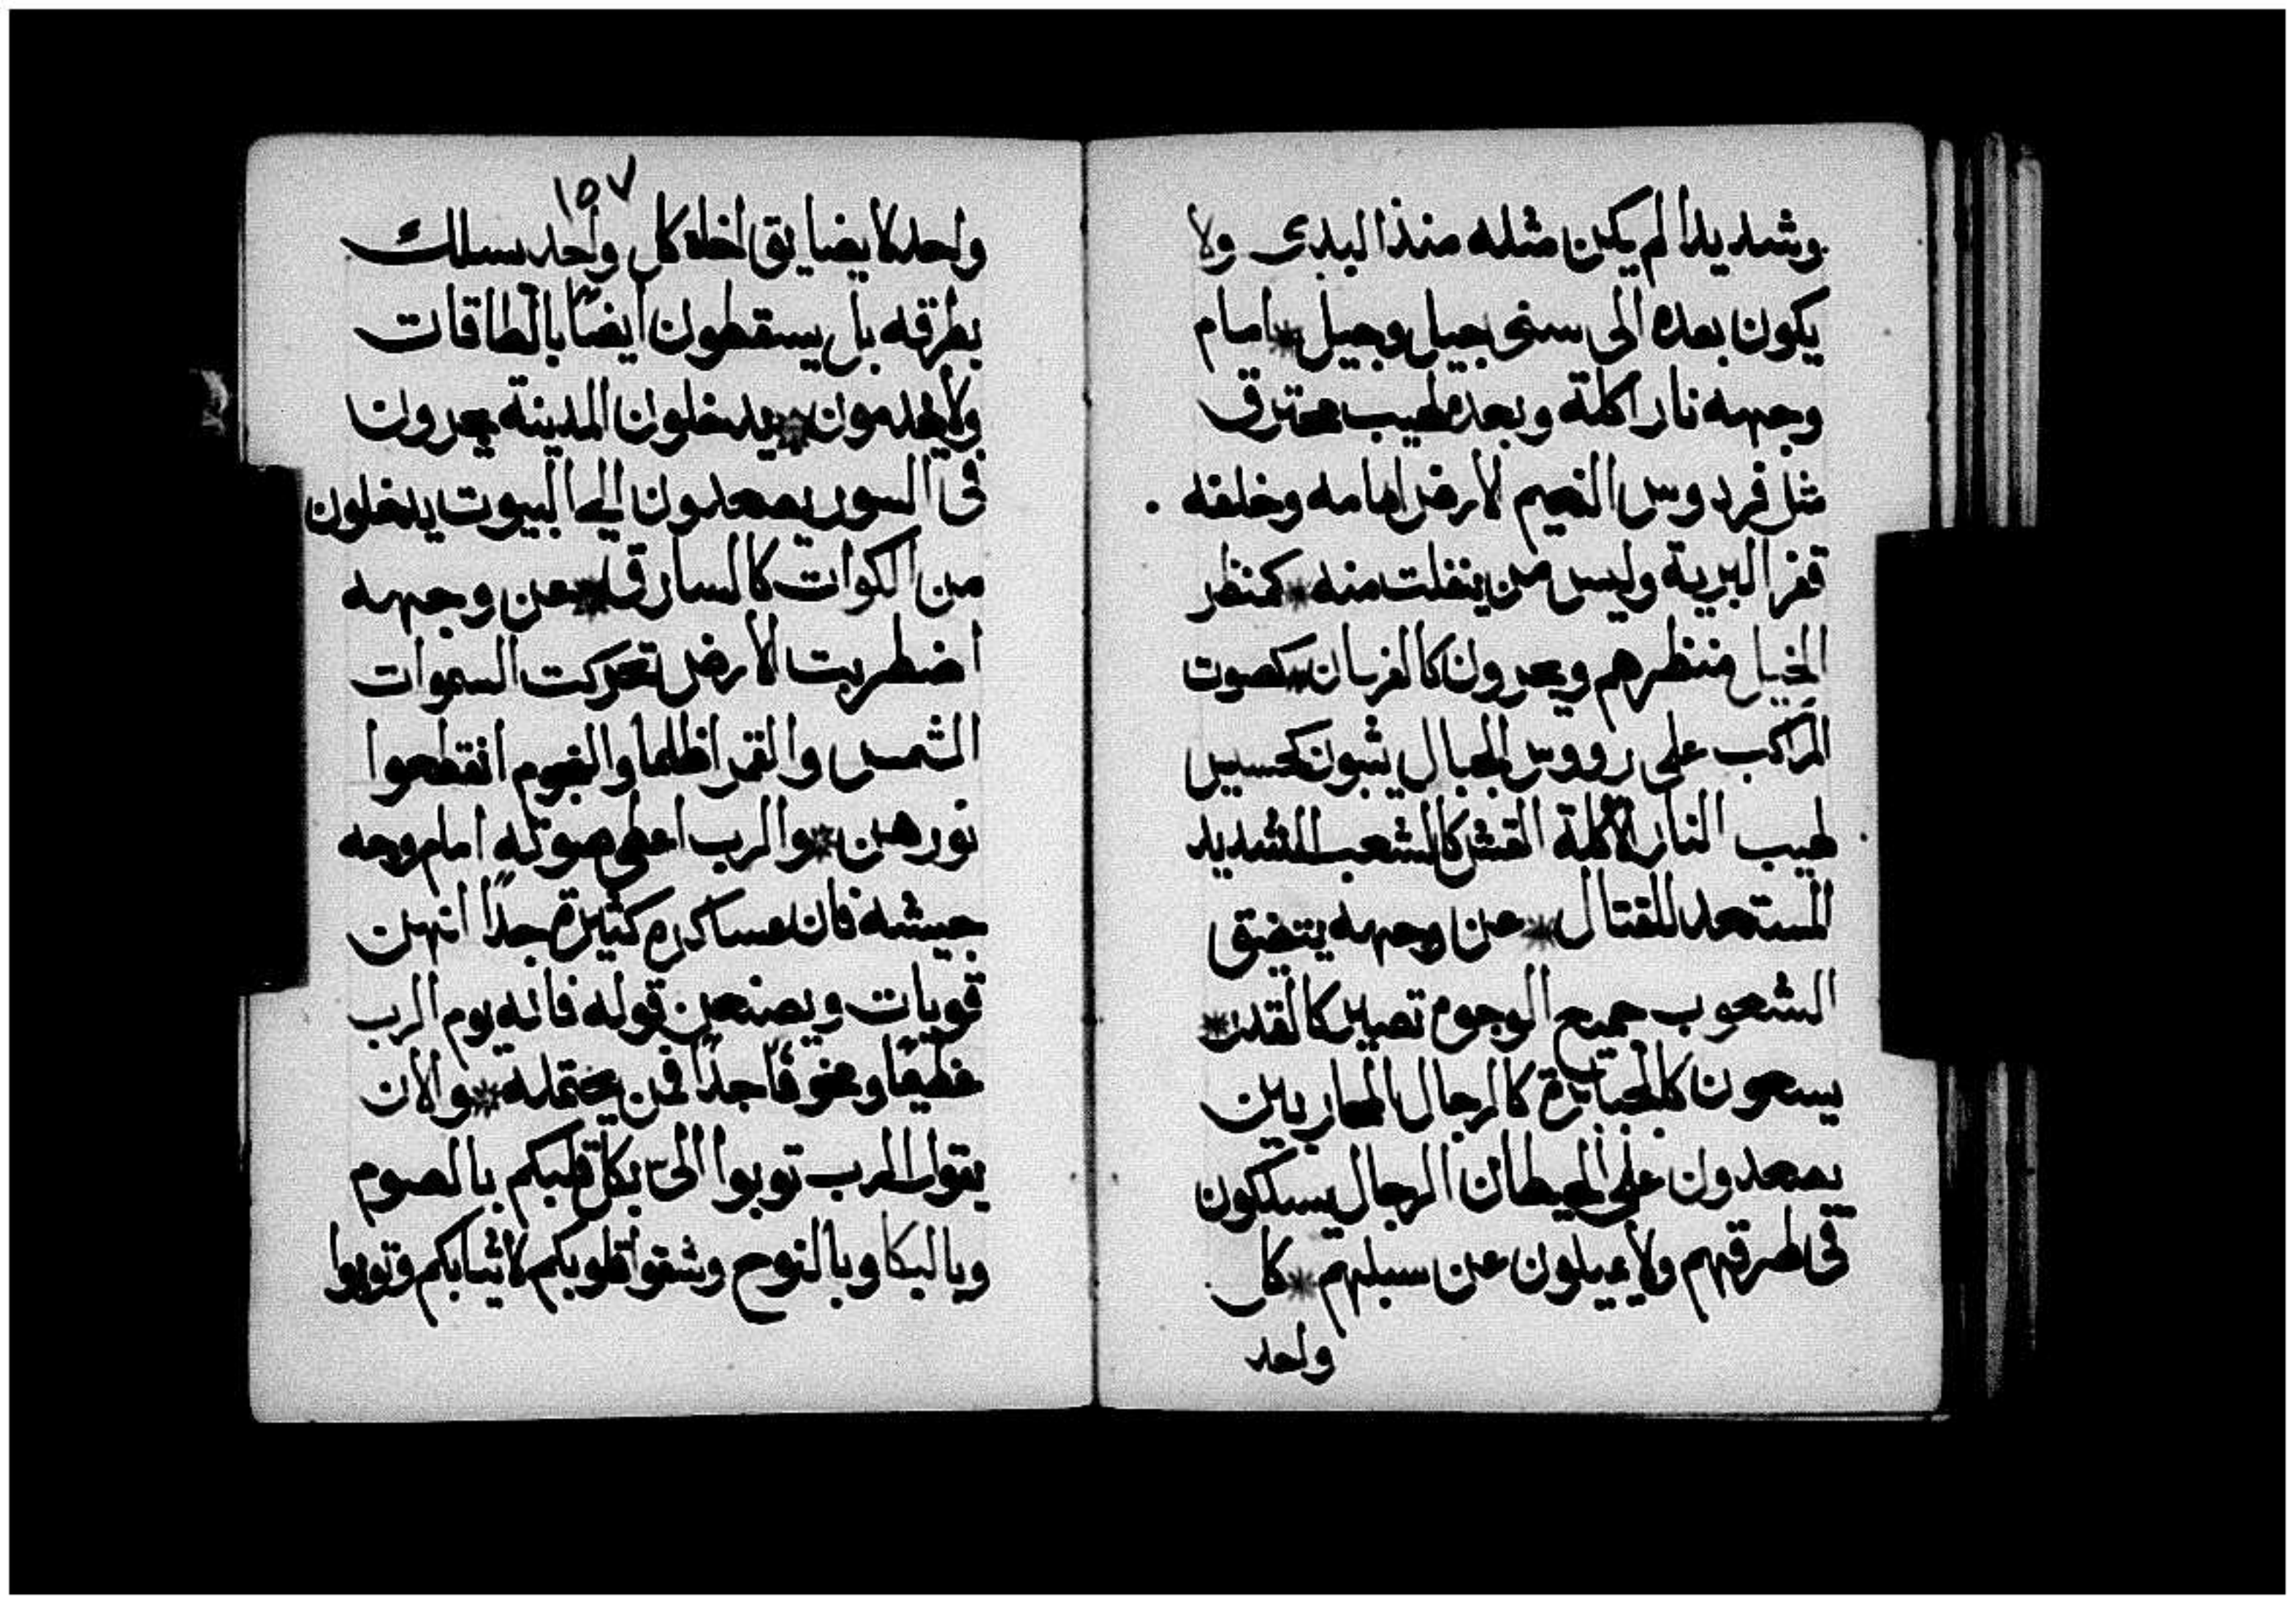 وشديدا لم يكن مثله منذ البدى ولا
يكون بعده الى سنى جيل وجيل * امام
وجهه نار اكلة وبعده لهيب محترق
مثل فردوس النعيم لارض امامه وخلفه
قفر البرية وليس من ينفلت منه * كمنظر
الخيل منظرهم ويجرون كالفرسان * كصوت
المراكب على رووس الجبال يثبون كحسيس
لهيب النار الآكلة القش كالشعب الشديد
المستعد للقتال * عن وجهه يتضيق
الشعوب جميع الوجوه تصير كالقدر *
يسعون كالجبابرة كالرجال المحاربين
يصعدون على الحيطان الرجال يسلكون
فى طرقهم ولا يميلون عن سبلهم * كل
واحد
١٥٧
واحد لا يضايق اخاه كل واحد يسلك
بطرقه بل يسقطون ايضًا بالطاقات
ولا يخدمون * يدخلون المدينة يجرون
فى السور يصعدون الى البيوت يدخلون
من الكوات كالسارق * عن وجهه
اضطربت الارض تحركت السموات
الشمس والقمر اظلما والنجوم انقطعوا
نورهن * والرب اعطى صوته امام وجه
جيشه فان عساكره كثيرة جدًا انهن
قويات ويصنعن قوله فانه يوم الرب
عظيمًا ومخوفًا جدًا فمن يحتمله * والان
يقول الرب توبوا الىّ بكل قلبكم بالصوم
وبالبكا وبالنوح وشقوا قلوبكم لا ثيابكم وتوبوا